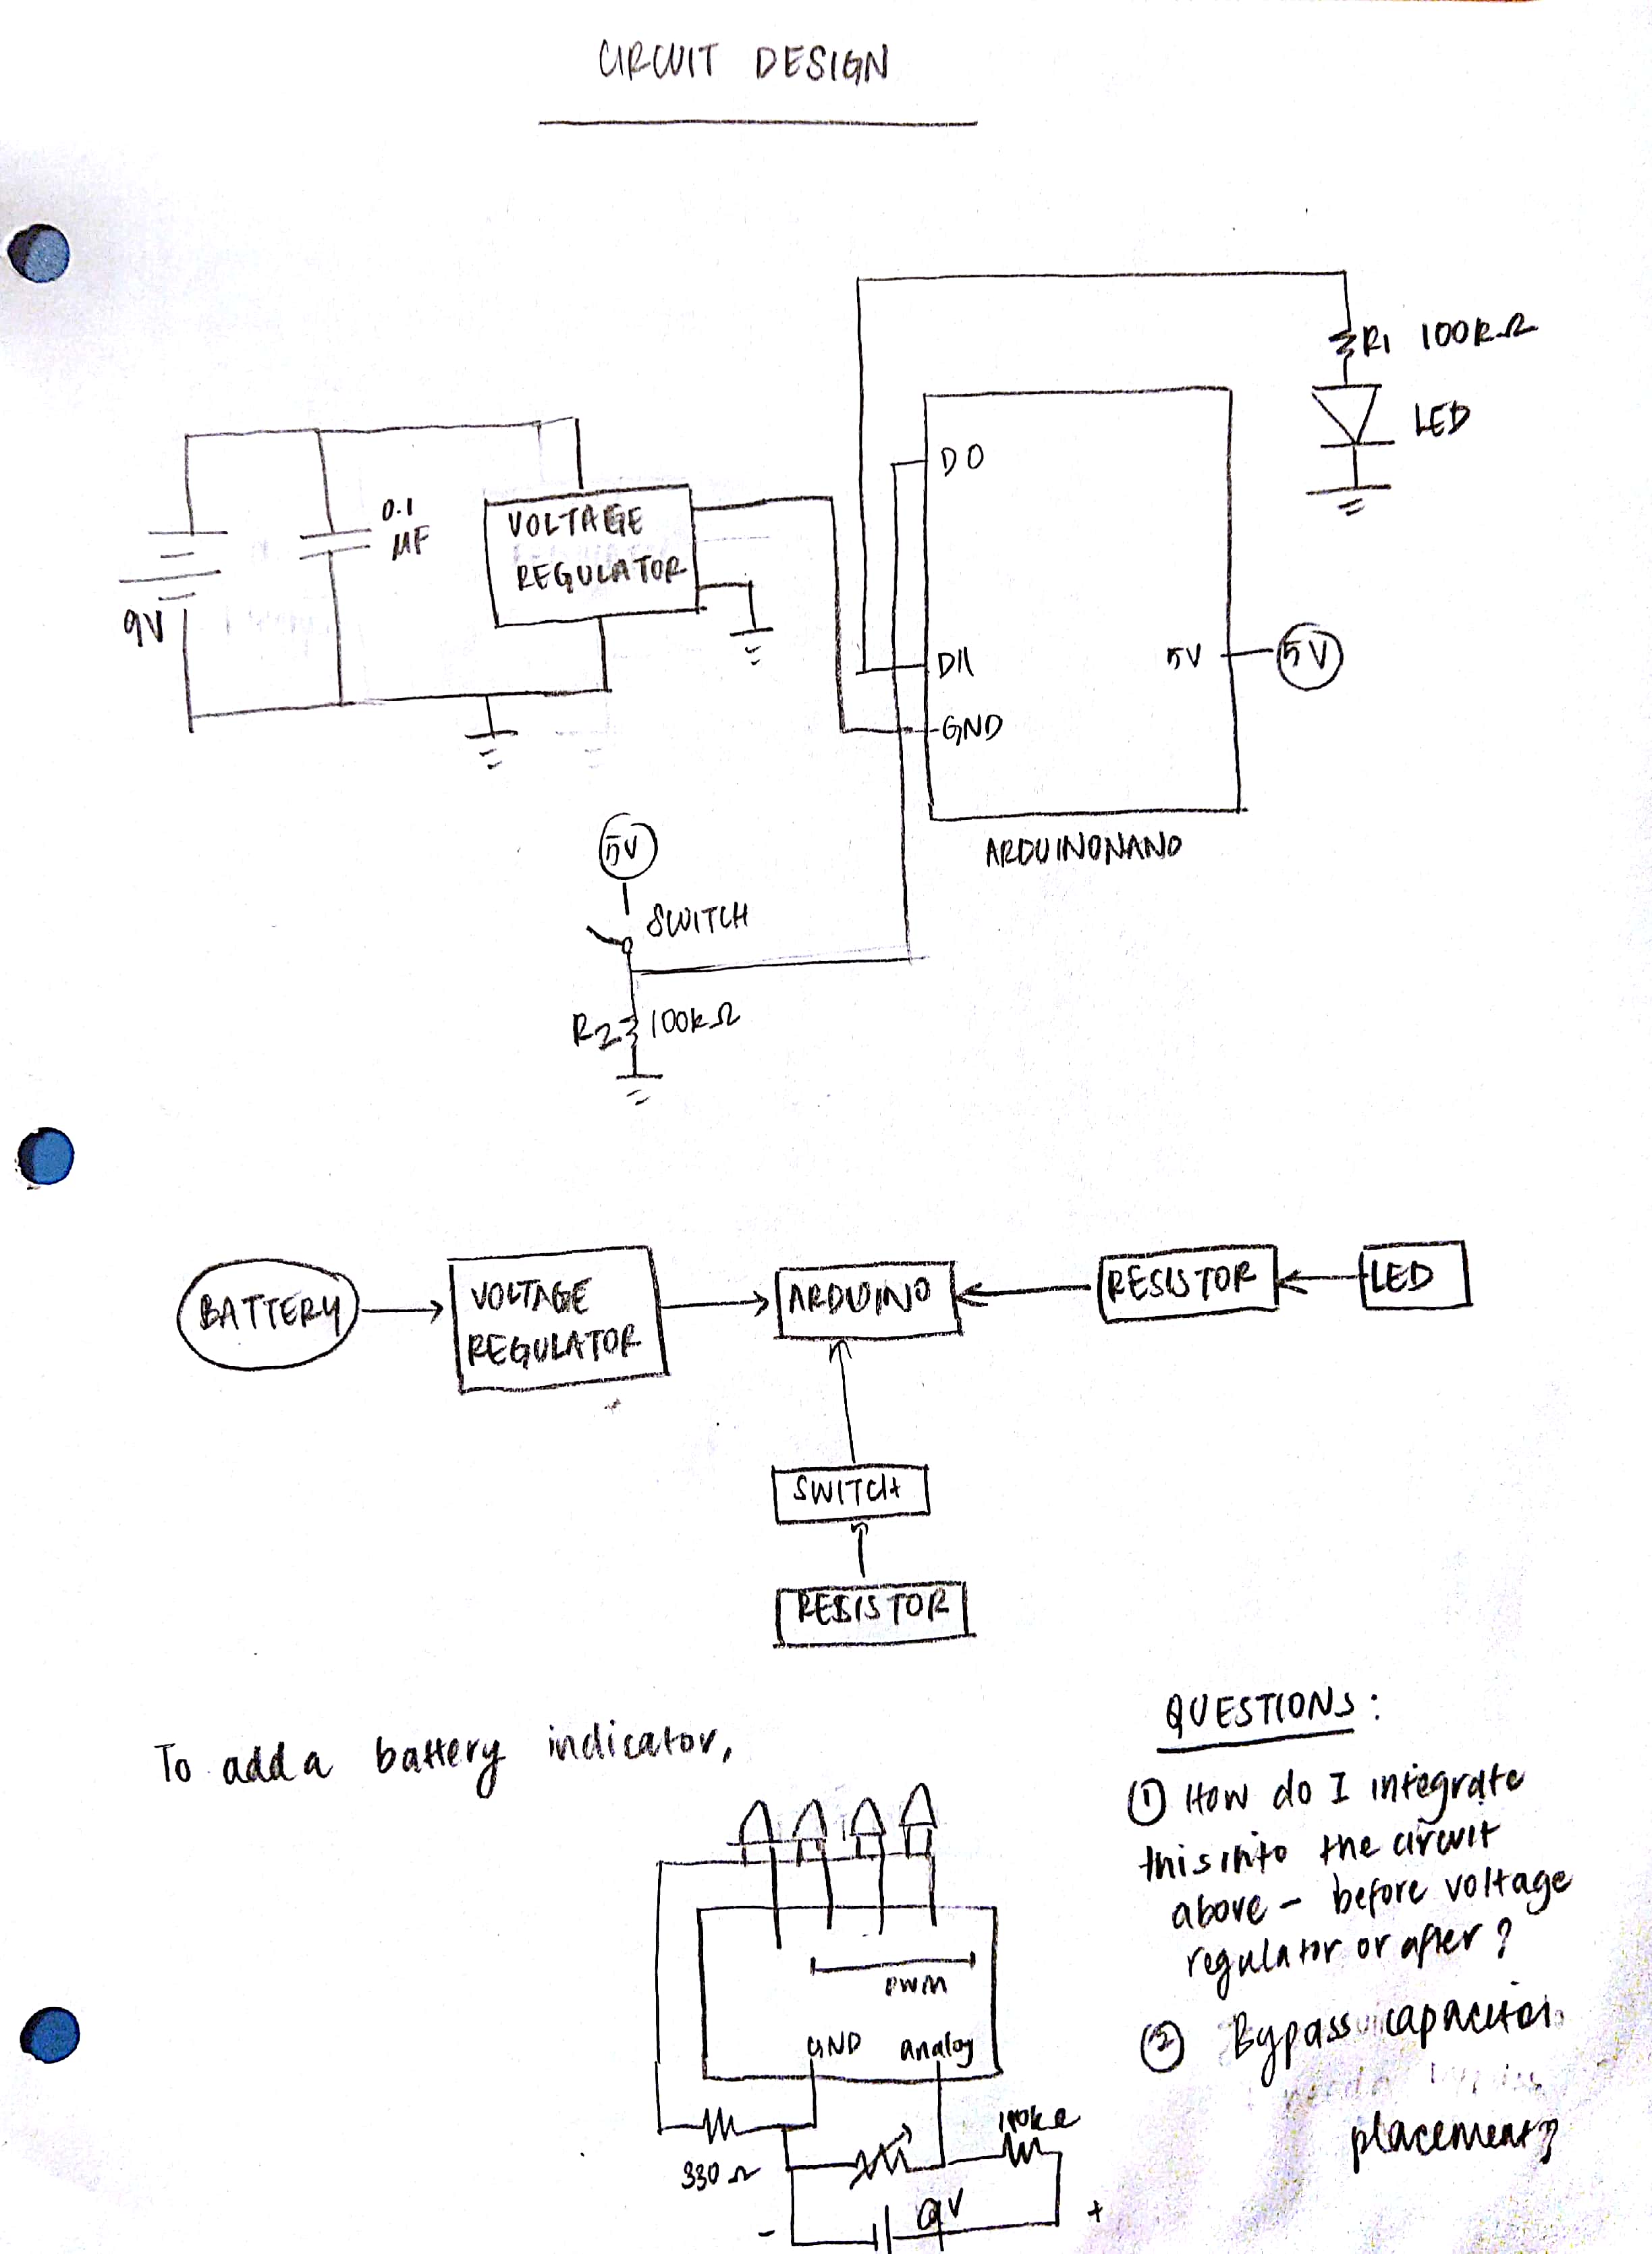 CIRCUIT DESIGN
R1 100kΩ
LED
0.1
μF
VOLTAGE
REGULATOR
9V
D0
D11
GND
5V
5V
ARDUINONANO
5V
SWITCH
R2 100kΩ
BATTERY
VOLTAGE
REGULATOR
ARDUINO
RESISTOR
LED
SWITCH
RESISTOR
To add a battery indicator,
PWM
GND analog
330Ω
9V
- +
QUESTIONS:
① How do I integrate
this into the circuit
above - before voltage
regulator or after?
② Bypass capacitor
placement?